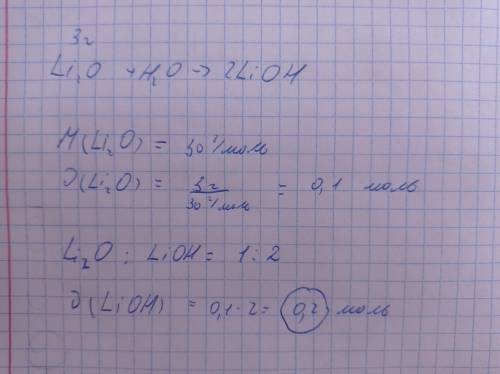 3г
Li₂O + H₂O → 2LiOH
M(Li₂O) = 30 г/моль
ϑ(Li₂O) = 3г / 30 г/моль = 0,1 моль
Li₂O : LiOH = 1 : 2
ϑ(LiOH) = 0,1 · 2 = 0,2 моль